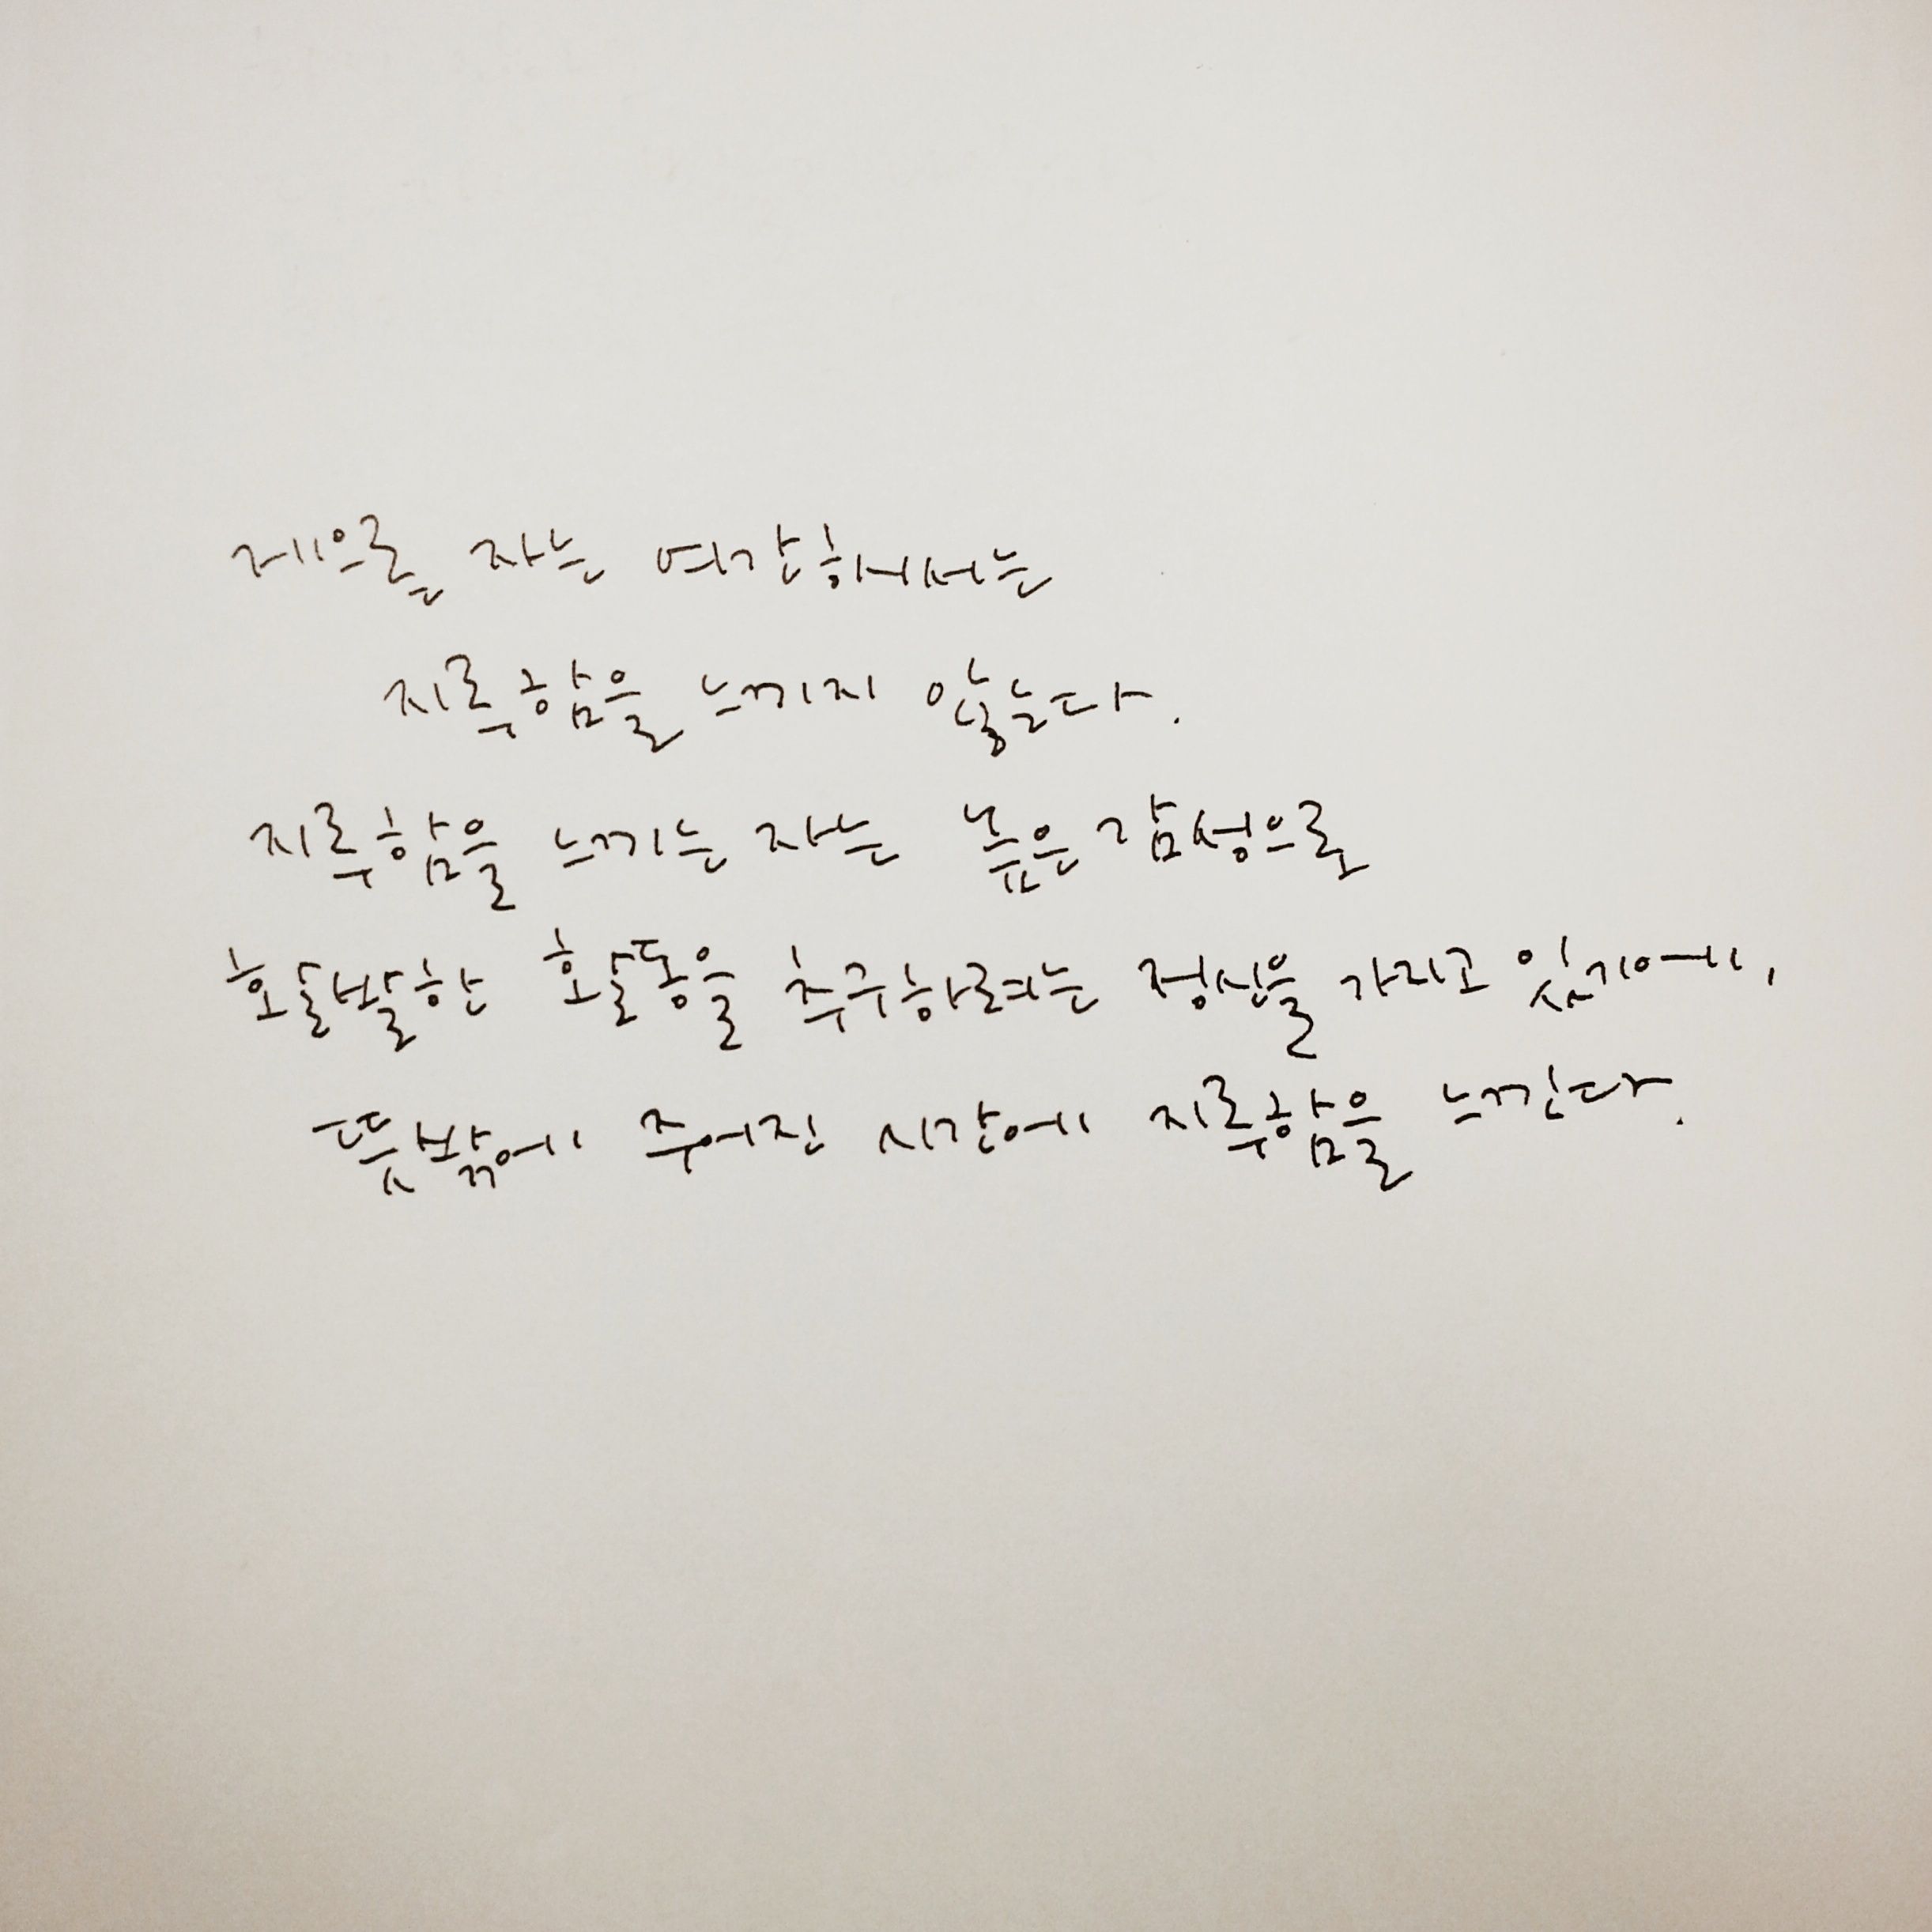 게으른 자는 여간해서는
지루함을 느끼지 않는다.
지루함을 느끼는 자는 높은 감성으로
활발한 활동을 추구하려는 정신을 가지고 있기에,
뜻밖에 주어진 시간에 지루함을 느낀다.